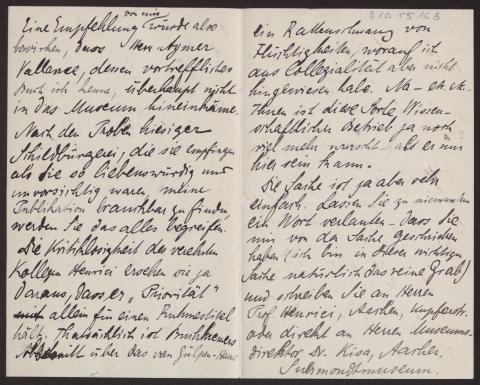 Eine Empfehlung von mir würde also
bewirken, dass Herr Aymer
Vallance, dessen vortreffliches
Buch ich kenne, überhaupt nicht
in das Museum hineinkäme.
Nach den Proben hiesiger
Schildbürgerei, die sie empfingen
als sie so liebenswürdig und
unvorsichtig waren, meine
Publikation brauchbar zu finden,
werden Sie das alles begreifen.
Die Kritiklosigkeit des verehrten
Kollegen Henrici ersehen wir ja
daraus, dass er „Priorität“
allein für einen Ruhmestitel
hält. Thatsächlich ist Buchkremers
über das van Gülpen-Haus
D 182 55 16 B
ein Rattenschwanz von
Flüchtigkeiten, worauf ich
aus Collegialität aber nicht
hingewiesen habe. Na – etc. etc.
Ihnen ist diese Sorte Wissen-
schaftlichen Betrieb ja noch
viel mehr wurscht als er mir
hier sein kann.
Die Sache ist ja aber sehr
einfach. Lassen Sie zu niemandem
ein Wort verlauten, dass Sie
mir von der Sache geschrieben
haben (ich bin in dieser wichtigen
Sache natürlich das reine Grab)
und schreiben Sie an Herrn
Prof. Henrici, Aachen,
oder direkt an Herrn Museums-
direktor Dr. Kisa, Aachen,
Suermondtmuseum.